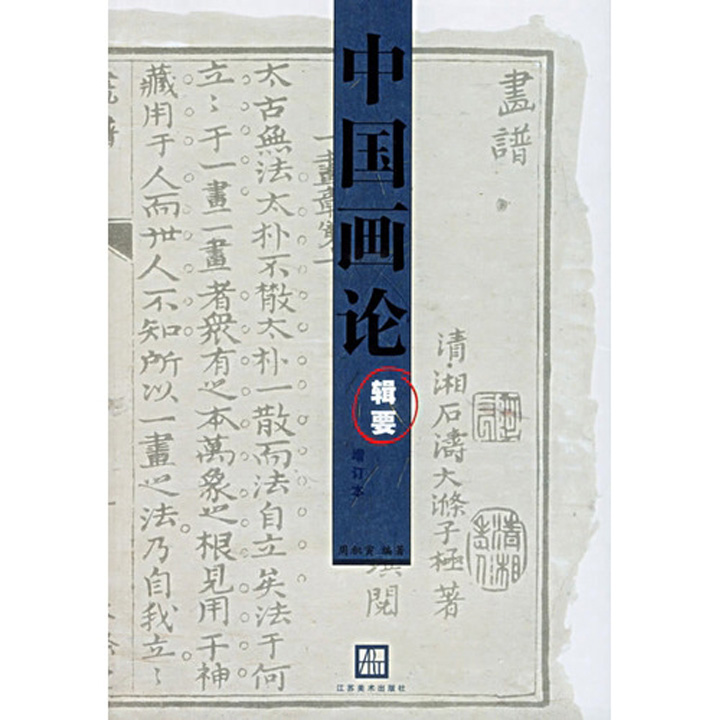 中国画论
辑要
增订本
周积寅 编著
江苏美术出版社
畫譜
清·湘石濤大滌子極著
一畫章第一
太古無法太朴不散太朴一散而法自立矣法于何
立立于一畫一畫者衆有之本萬象之根見用于神
藏用于人而世人不知所以一畫之法乃自我立立
閱
清湘